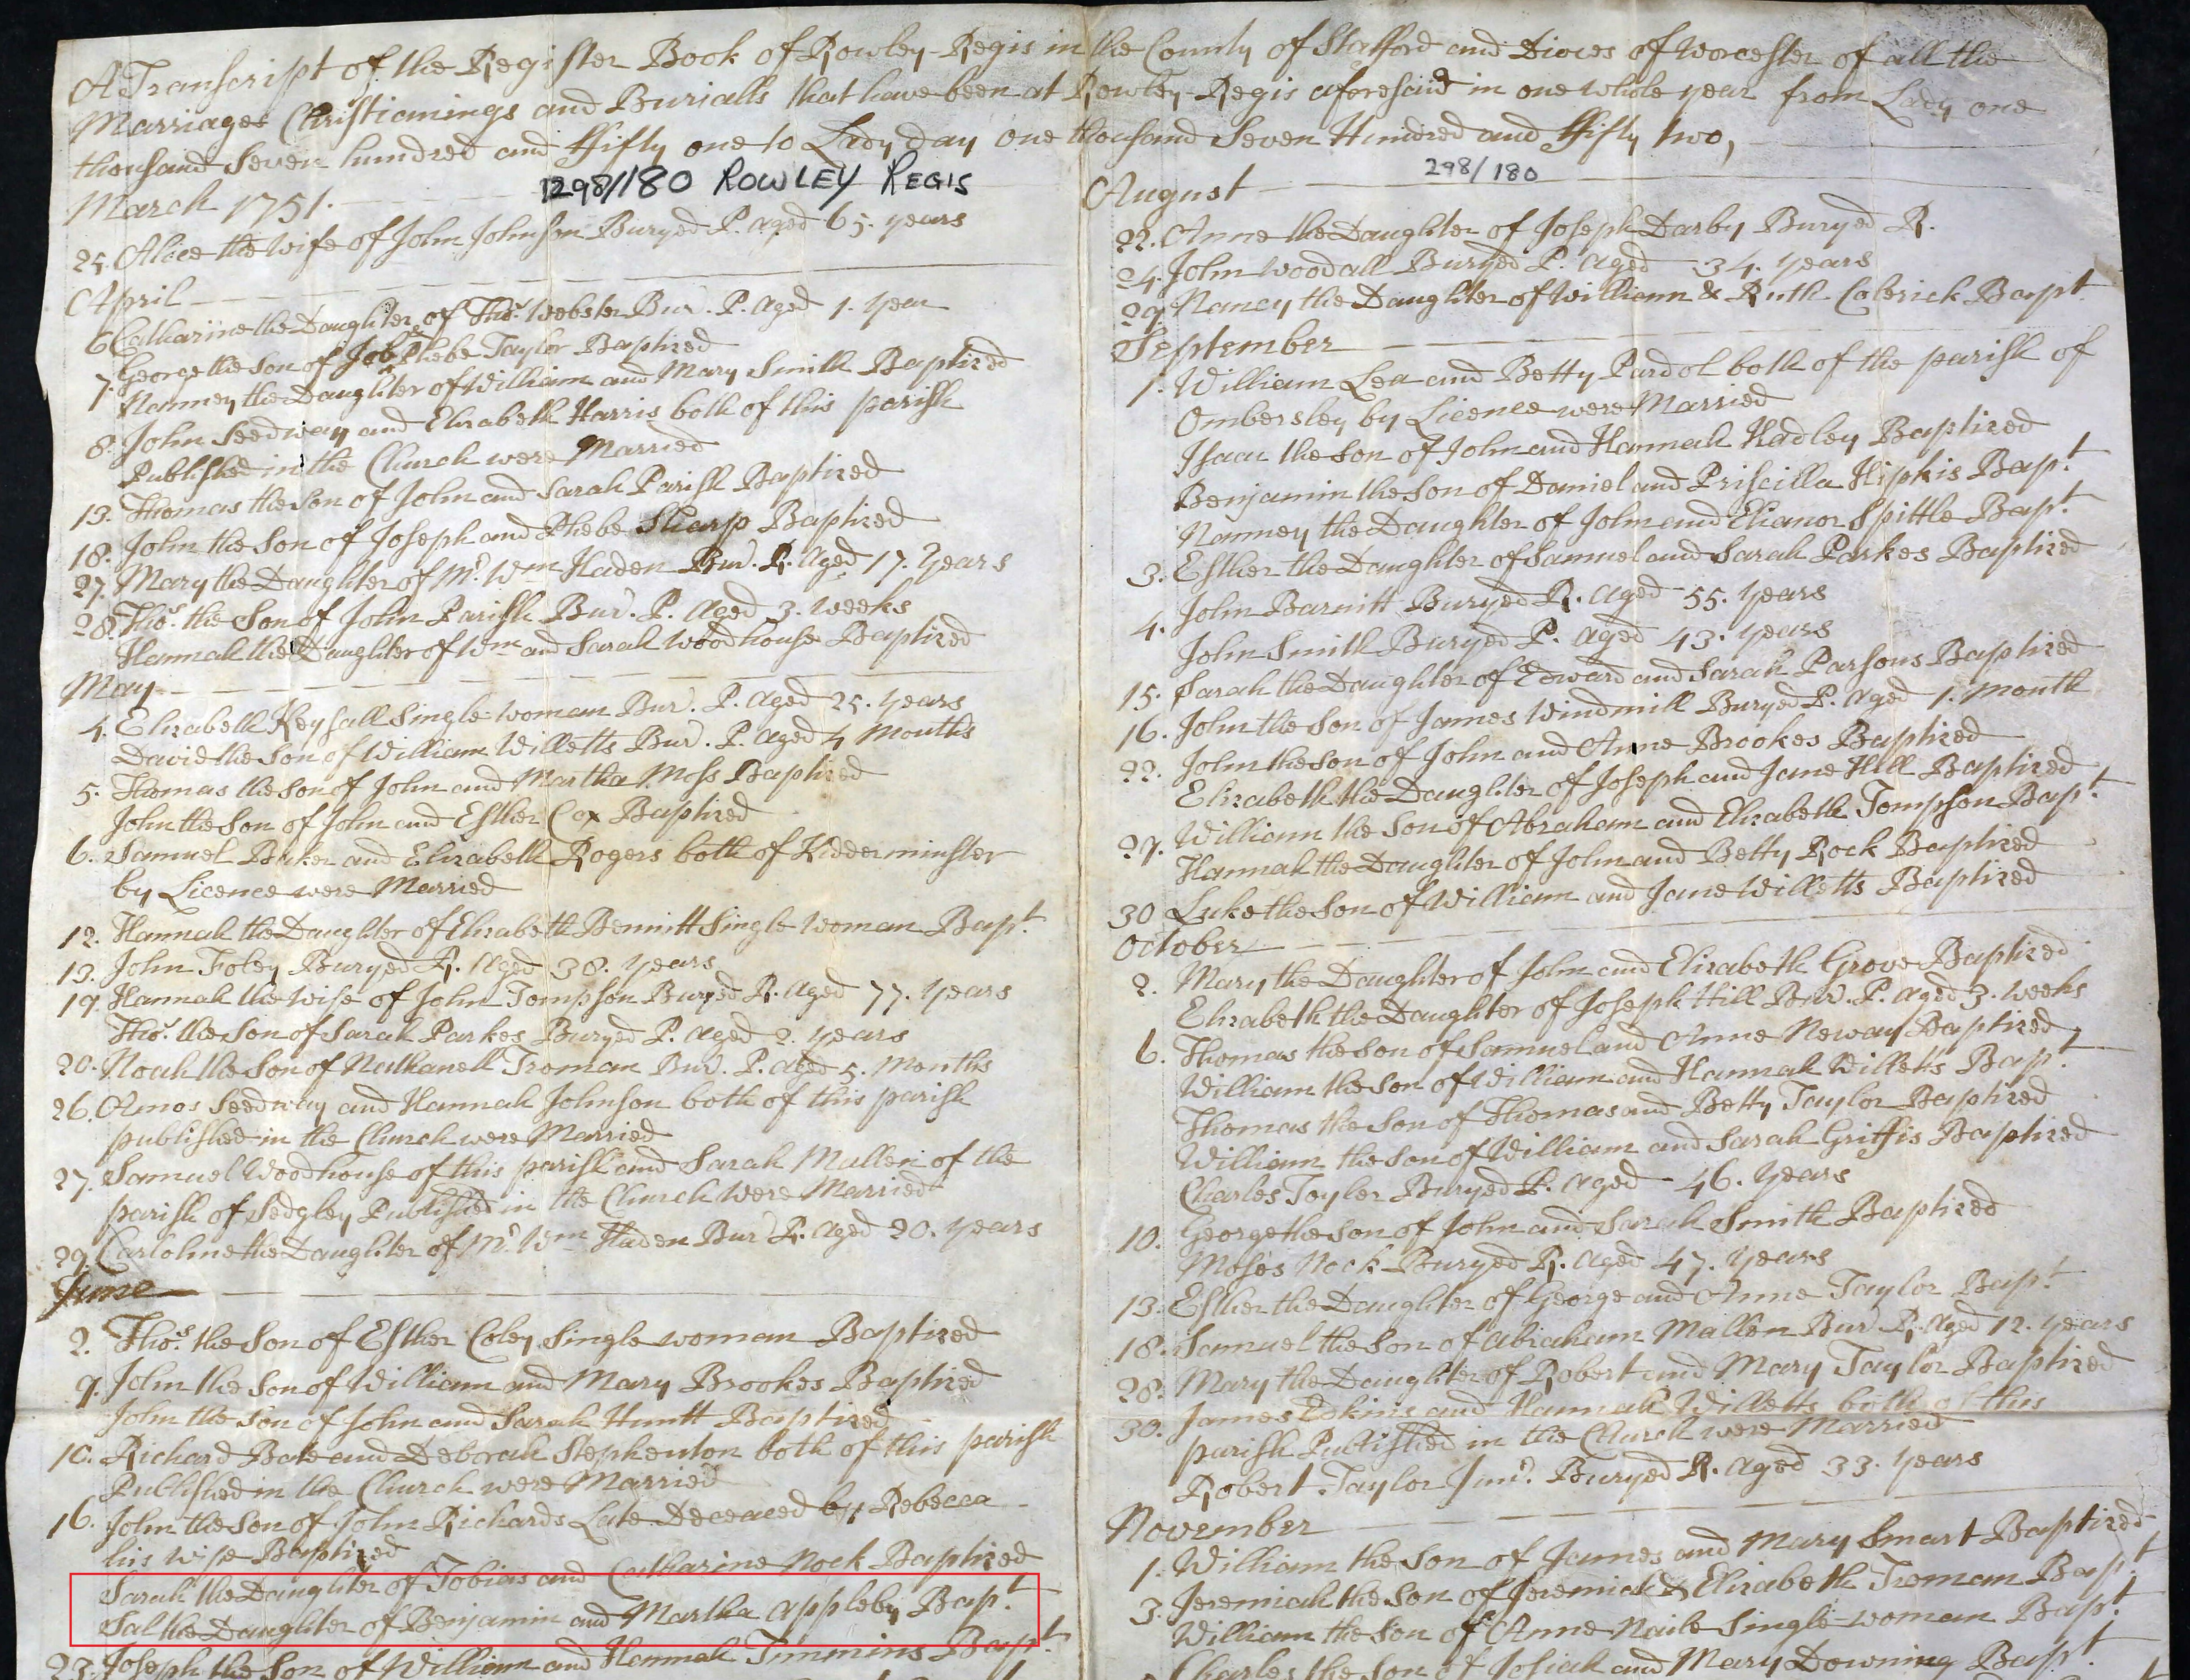 A Transcript of the Register Book of Rowley-Regis in the County of Stafford and Dioces of Worcester of all the
Marriages Christianings and Burialls that have been at Rowley-Regis aforesaid in one whole year from Lady one
thousand Seven hundred and ffifty one to Lady day one thousand Seven Hundred and ffifty two,
1298/180 ROWLEY REGIS
March 1751.
25. Alice the Wife of John Johnson Buryed P. aged 65. years
April
6 Catharine the Daughter of Thos. Webster Bur. P. aged 1. year
7. George the Son of Job & Phebe Taylor Baptized
Nanney the Daughter of William and Mary Smith Baptized
8. John Seedway and Elizabeth Harris both of this parish
Published in the Church were Married
13. Thomas the Son of John and Sarah Parish Baptized
18. John the Son of Joseph and Phebe Sharp Baptized
27. Mary the Daughter of Mr. Wm Haden Bur. R. Aged 17. Years
28. Thos. the Son of John Parish Bur. P. Aged 3. weeks
Hannah the Daughter of Wm and Sarah Woodhouse Baptized
May
4. Elizabeth Keysall Single woman Bur. P. aged 25. years
David the Son of William Willetts Bur. P. aged 4 Months
5. Thomas the Son of John and Martha Moss Baptized
John the Son of John and Esther Cox Baptized
6. Samuel Baker and Elizabeth Rogers both of Kidderminster
by Licence were Married
12. Hannah the Daughter of Elizabeth Bennitt Single woman Bapt
13. John Foley Buryed R. Aged 38. years
19. Hannah the Wife of John Tompson Buryed R. aged 77. years
Thos. the Son of Sarah Parkes Buryed P. aged 2. years
20. Noah the Son of Nathanell Troman Bur. P. aged 5. Months
26. Amos Seedway and Hannah Johnson both of this parish
published in the Church were Married
27. Samuel Woodhouse of this parish and Sarah Mallen of the
parish of Sedgley Published in the Church were Married
29. Carloline the Daughter of Mr. Wm Haden Bur R. aged 20. years
June
2. Thos. the Son of Esther Coley Single woman Baptized
9. John the Son of William and Mary Brookes Baptized
John the Son of John and Sarah Huntt Baptized
10. Richard Bate and Deborah Stephenton both of this parish
Published in the Church were Married
16. John the Son of John Richards Late Deceaced by Rebecca
his Wife Baptized
Sarah the Daughter of Tobias and Catharine Nock Baptized
Sal the Daughter of Benjamin and Martha appleby Bapt
23. Joseph the Son of William and Hannah Timmins Bapt
298/180
August
22. Anne the Daughter of Joseph Darby Buryed R.
24. John Woodall Buryed P. aged 34. years
29. Nancy the Daughter of William & Ruth Calerick Bapt
September
1. William Lea and Betty Pardol both of the parish of
Ombersley by Licence were Married
Isaac the Son of John and Hannah Hadley Baptized
Benjamin the Son of Daniel and Priscilla Hipkis Bapt
Nanney the Daughter of John and Elianor Spittle Bapt
3. Esther the Daughter of Samuel and Sarah Parkes Baptized
4. John Barnitt Buryed R. aged 55. years
John Smith Buryed P. aged 43. years
15. Sarah the Daughter of Edward and Sarah Parsons Baptized
16. John the Son of James Windmill Buryed P. aged 1. Month
22. John the Son of John and Anne Brookes Baptized
Elizabeth the Daughter of Joseph and Jane Hill Baptized
29. William the Son of Abraham and Elizabeth Tompson Bapt
Hannah the Daughter of John and Betty Rock Baptized
30 Luke the Son of William and Jane Willetts Baptized
October
2. Mary the Daughter of John and Elizabeth Grove Baptized
Elizabeth the Daughter of Joseph Hill Bur. P. aged 3. weeks
6. Thomas the Son of Samuel and Anne Neway Baptized
William the Son of William and Hannah Willetts Bapt
Thomas the Son of Thomas and Betty Taylor Baptized
William the Son of William and Sarah Griffis Baptized
Charles Toyler Buryed P. aged 46. years
10. George the Son of John and Sarah Smith Baptized
Moses Nock Buryed R. aged 47. years
13. Esther the Daughter of George and Anne Taylor Bapt
18. Samuel the Son of Abraham Mallen Bur R. Aged 12. years
28. Mary the Daughter of Robert and Mary Taylor Baptized
30. James Edkins and Hannah Willetts both of this
parish Published in the Church were Married
Robert Taylor Junr. Buryed R. Aged 33. years
November
1. William the Son of James and Mary Smart Baptized
3. Jeremiah the Son of Jeremiah & Elizabeth Troman Bapt
William the Son of Anne Naile Single woman Bapt
Charles the Son of Josiah and Mary Downing Bapt